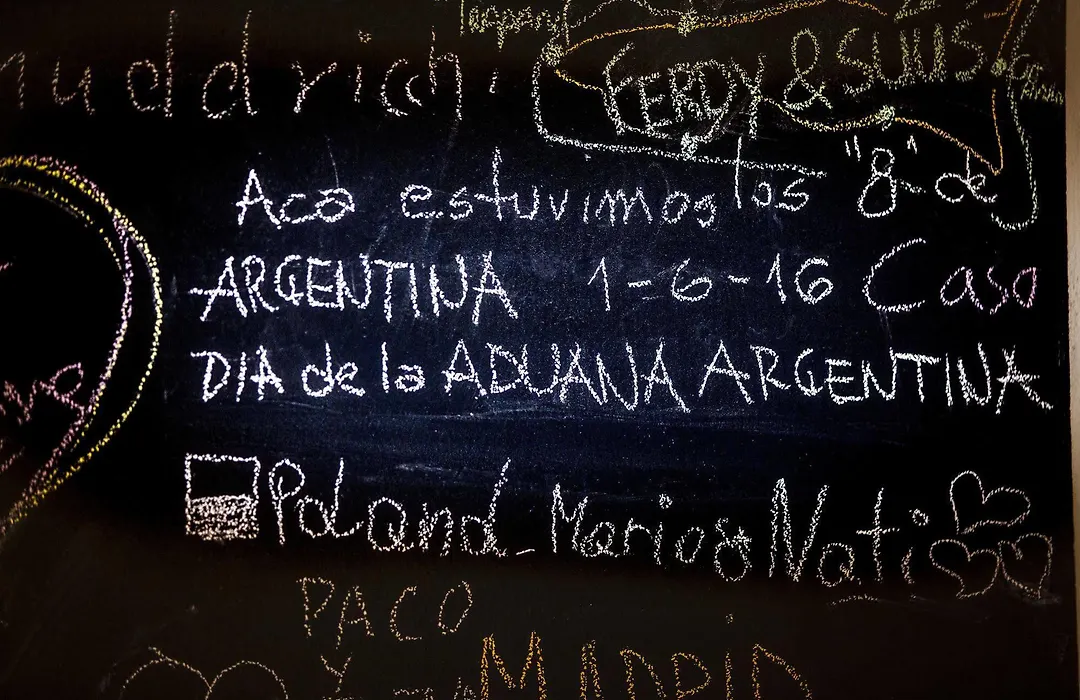 FERDY & SUUS
Aca estuvimos los "8" de
ARGENTINA 1-6-16 Casa
DIA de la ADUANA ARGENTINA
Poland Marios & Nati
PACO
Y
MADRID